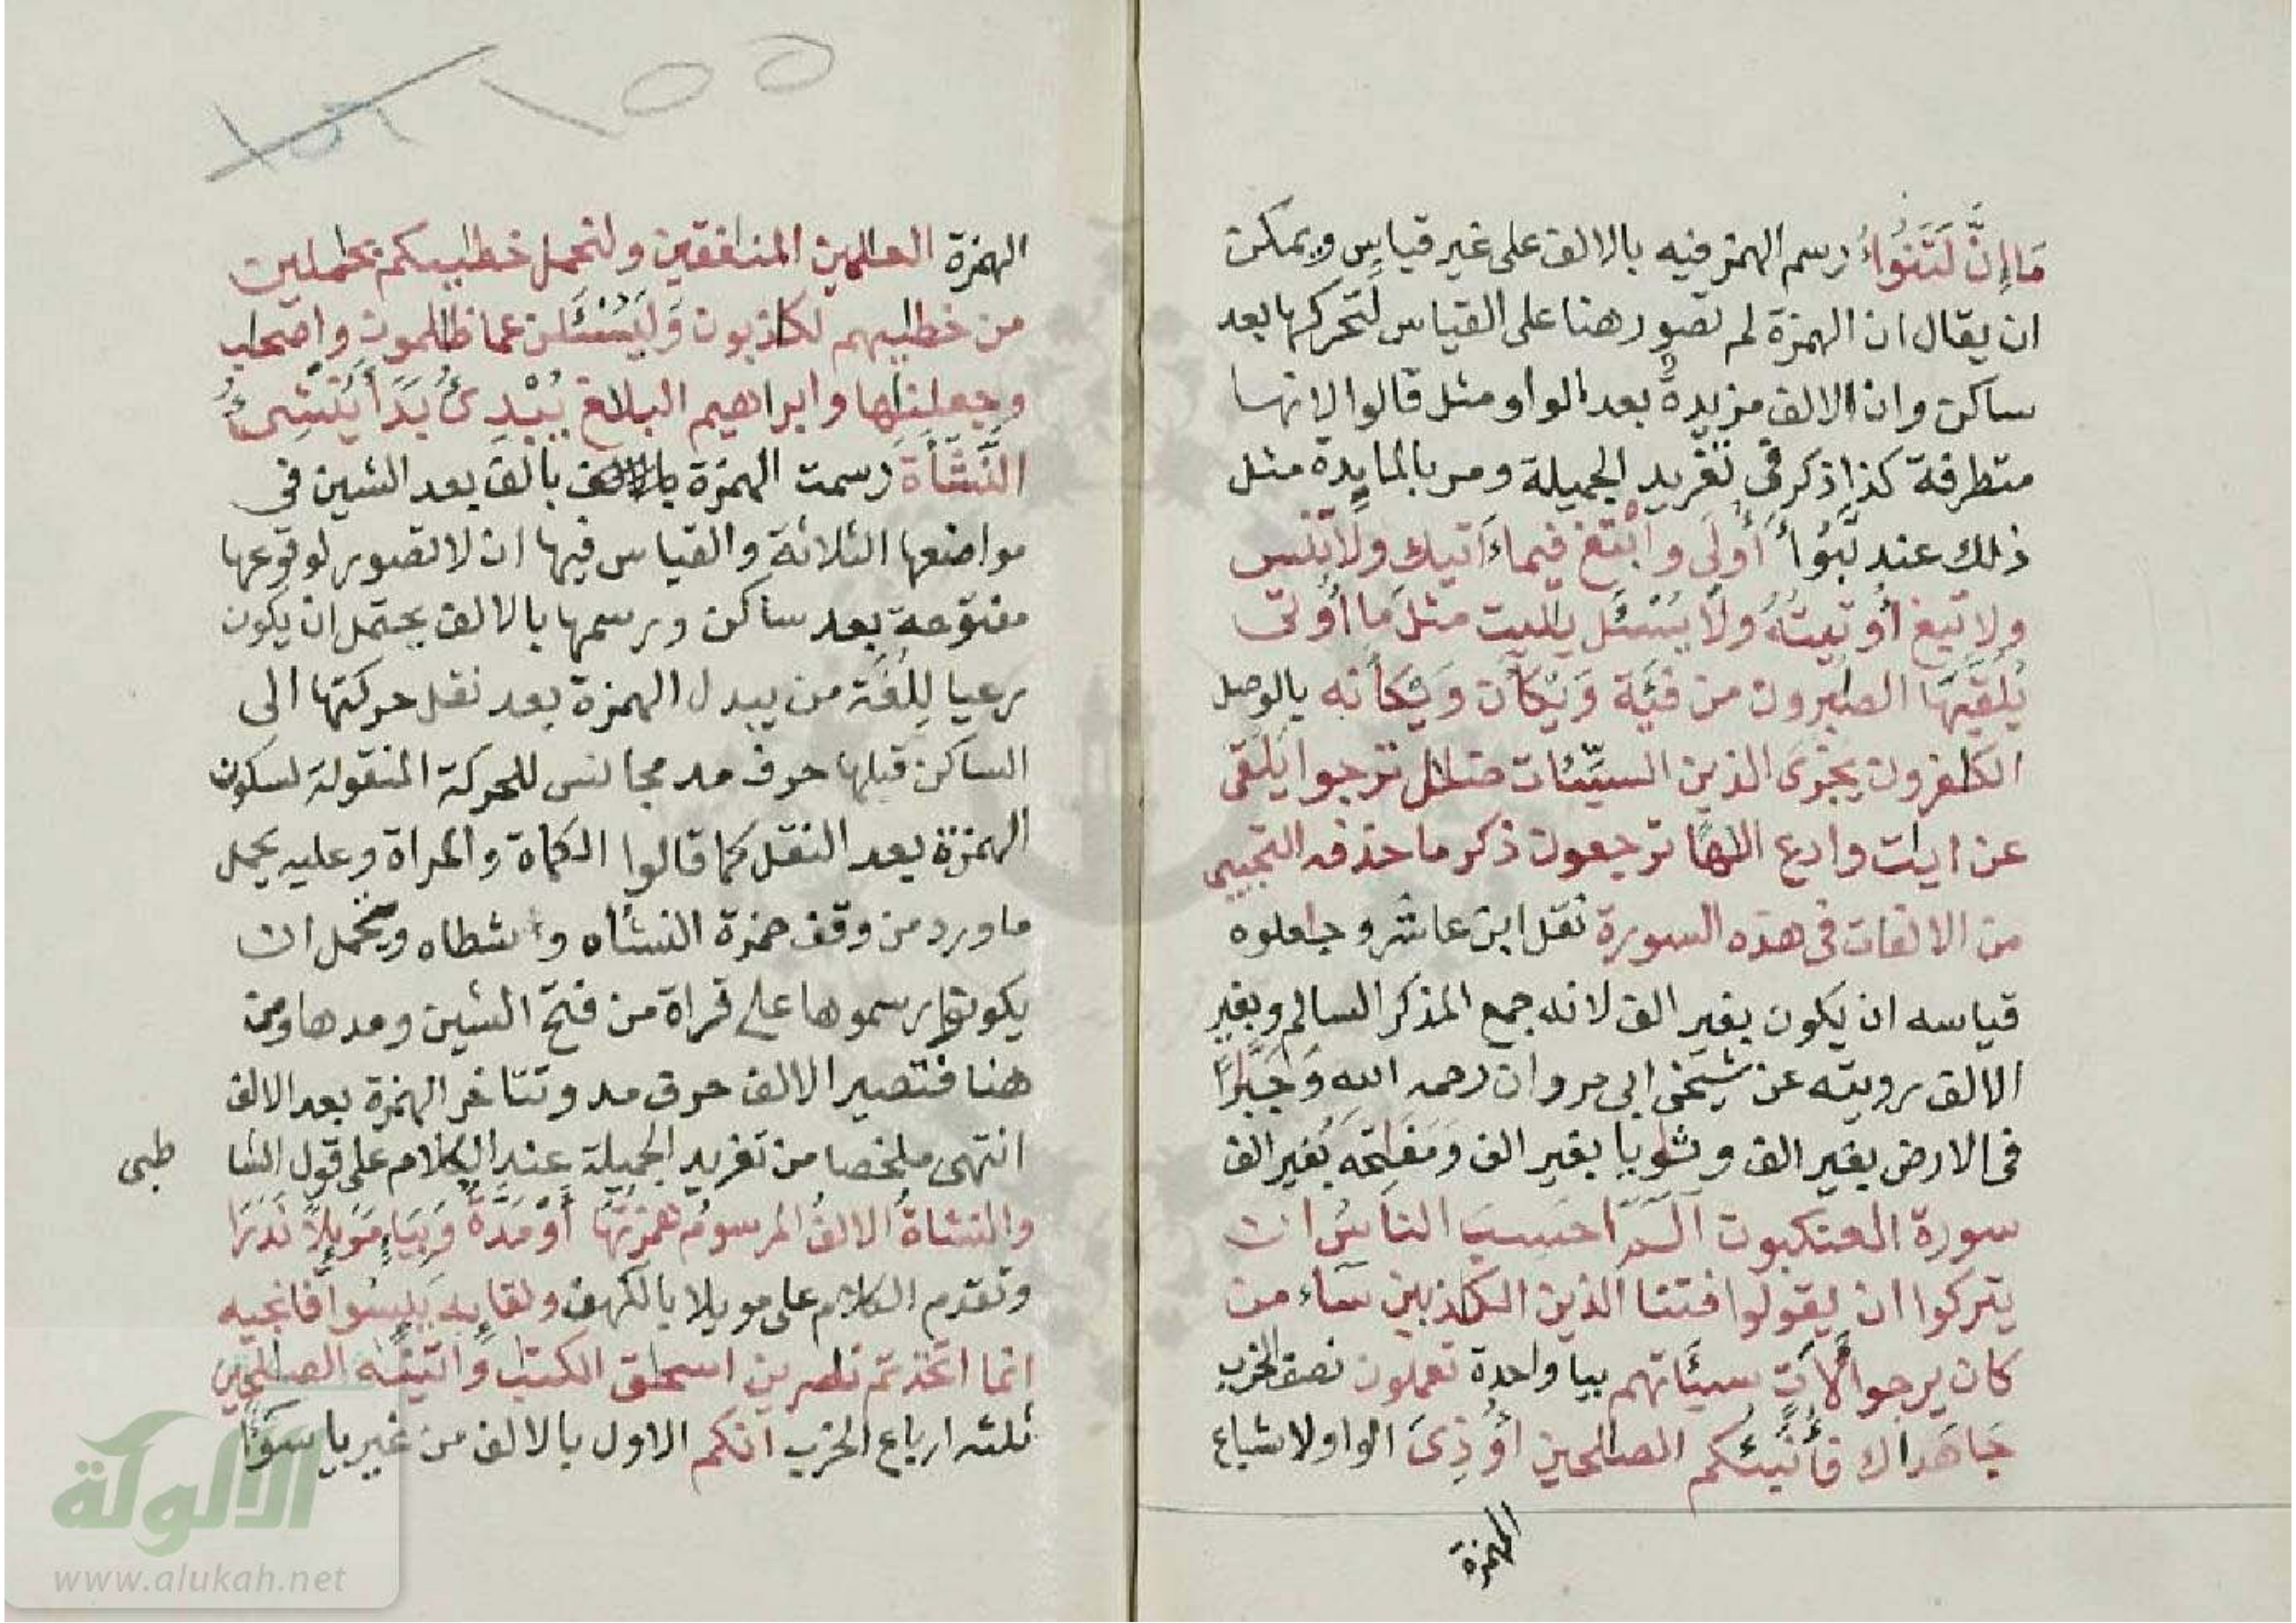 مَا إِنَّ لَتَنُوٓأُ رسم الهمز فيه بالالف على غير قياس ويمكن
ان يقال ان الهمزة لم تصور هنا على القياس لتحركها بعد
ساكن وان الالف مزيدة بعد الواو مثل قالوا لانها
متطرفة كذا ذكر في تغريد الجميلة ومر بالمايدة مثل
ذلك عند تَبُوأَ أُولَى وأبتغ فيما ءاتيك ولا تنس
ولا تبغ أُوتيتُهُ ولا يُسْئَل يليت مثل ما أُوتى
يُلَقَّيهَا الصبرون من فئة وَيْكَأن وَيْكَأنه بالوصل
الكفرون يجزى الذين السيِّئات ضلل ترجوا يلقى
عن ايت وادع الها ترجعون ذكر ما حذفه التجيبى
من الالفات فى هذه السورة نقل ابن عاشر وجاعلوه
قياسه ان يكون بغير الف لانه جمع المذكر السالم وبغير
الالف رويته عن شيخى ابى مروان رحمه الله وَجَبَّرًا
فى الارض بغير الف وثاويا بغير الف وَمَفَاتِحَهُ بغير الف
سورة العنكبوت الٓمٓ احَسِبَ الناسُ ان
يتركوا ان يقولوا فتنا الذين الكذبين سآء من
كان يرجوا لأَتٍ سيئاتهم بيا واحدة تعملون نصف الحزب
جَاهَداك فأُنَبِّئُكم الصالحين أُوذِىَ الواو لاشباع
الهمزة
الهمزة العلمين المنافقين ولنحمل خطيكم بحملين
من خطيهم لكاذبون وَلَيُسْئَلُن عما ظلمون واصحاب
وجعلناها وابراهيم البلاغ يُبْدِئُ بَدَأَ يُنْشِئُ
النَّشْأَةَ رسمت الهمزة بالف بعد الشين فى
مواضعها الثلاثة والقياس فيها ان لا تصور لوقوعها
مفتوحة بعد ساكن ورسمها بالالف يحتمل ان يكون
رعيا لِلُغَة من يبدل الهمزة بعد نقل حركتها الى
الساكن قبلها حرف مد مجانس للحركة المنقولة لسكون
الهمزة بعد النقل كما قالوا الكماة والمراة وعليه يحمل
ما ورد من وقف حمزة النشأه و شطاه ويحتمل ان
يكونوا رسموها على قراة من فتح الشين ومدها
هنا فتصير الالف حرف مد وتتاخر الهمزة بعد الالف
انتهى ملخصا من تغريد الجميلة عند الكلام على قول الشا طبى
والنشاةُ الالفُ المرسومُ همزتُهَا أوْ مَدَّةٌ وَبِيَاءٍ مَوْيِلًا نَدَرَا
وتقدم الكلام على مويلا بالكهف ولقايه يَئِسُوا فانجيه
انما اتخذتم نصرين اسحق الكتب وءاتينه الصلحين
ثلثه ارباع الحزب انكم الاول بالالف من غير يا سَوَآءً
الألوكة
www.alukah.net